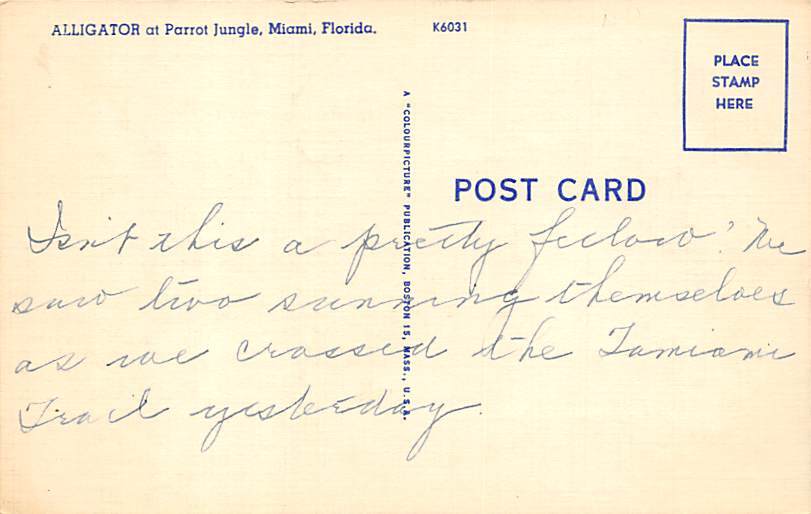 ALLIGATOR at Parrot Jungle, Miami, Florida.
K6031
PLACE
STAMP
HERE
A "COLOURPICTURE" PUBLICATION, BOSTON 15, MASS., U.S.A.
POST CARD
Isn't this a pretty fellow? We
saw two sunning themselves
as we crossed the Tamiami
Trail yesterday.